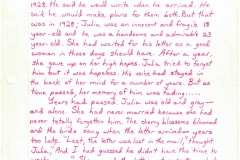 1928. He said he would write when he arrived. He
said he would make plans for them both. But that
was in 1928; Julia was an innocent and fragile 18
year-old and he was a handsome and admirable 23
year-old. She had waited for his letter as a good
woman in those days should have. After a year
she gave up on her high hopes. Julia tried to forget
him but it was hopeless. His voice had stayed in
the back of her mind for a number of years. But as
time passed, her memory of him was fading.....
Years had passed. Julia was old and gray—
and alone. She had never married because she had
never totally forgotten him. The cherry blossoms bloomed
and the birds sang when the letter arrived—years
too late. "Lost, the letter was lost in the mail," thought
Julia, "And I had guessed he didn't have the time to